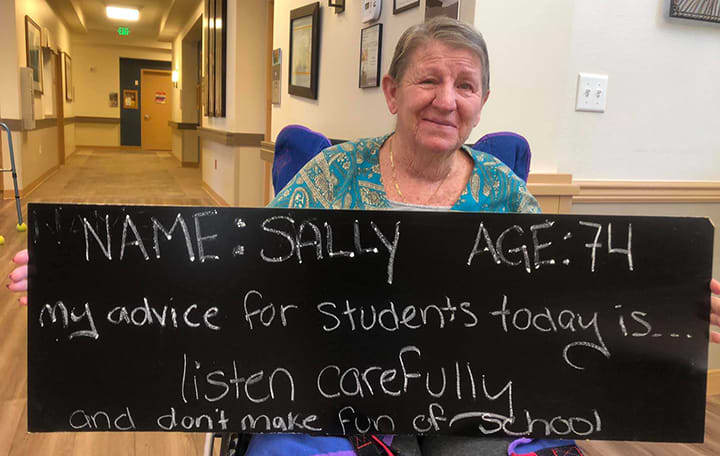 NAME: SALLY AGE: 74
my advice for students today is...
listen carefully
and don't make fun of school